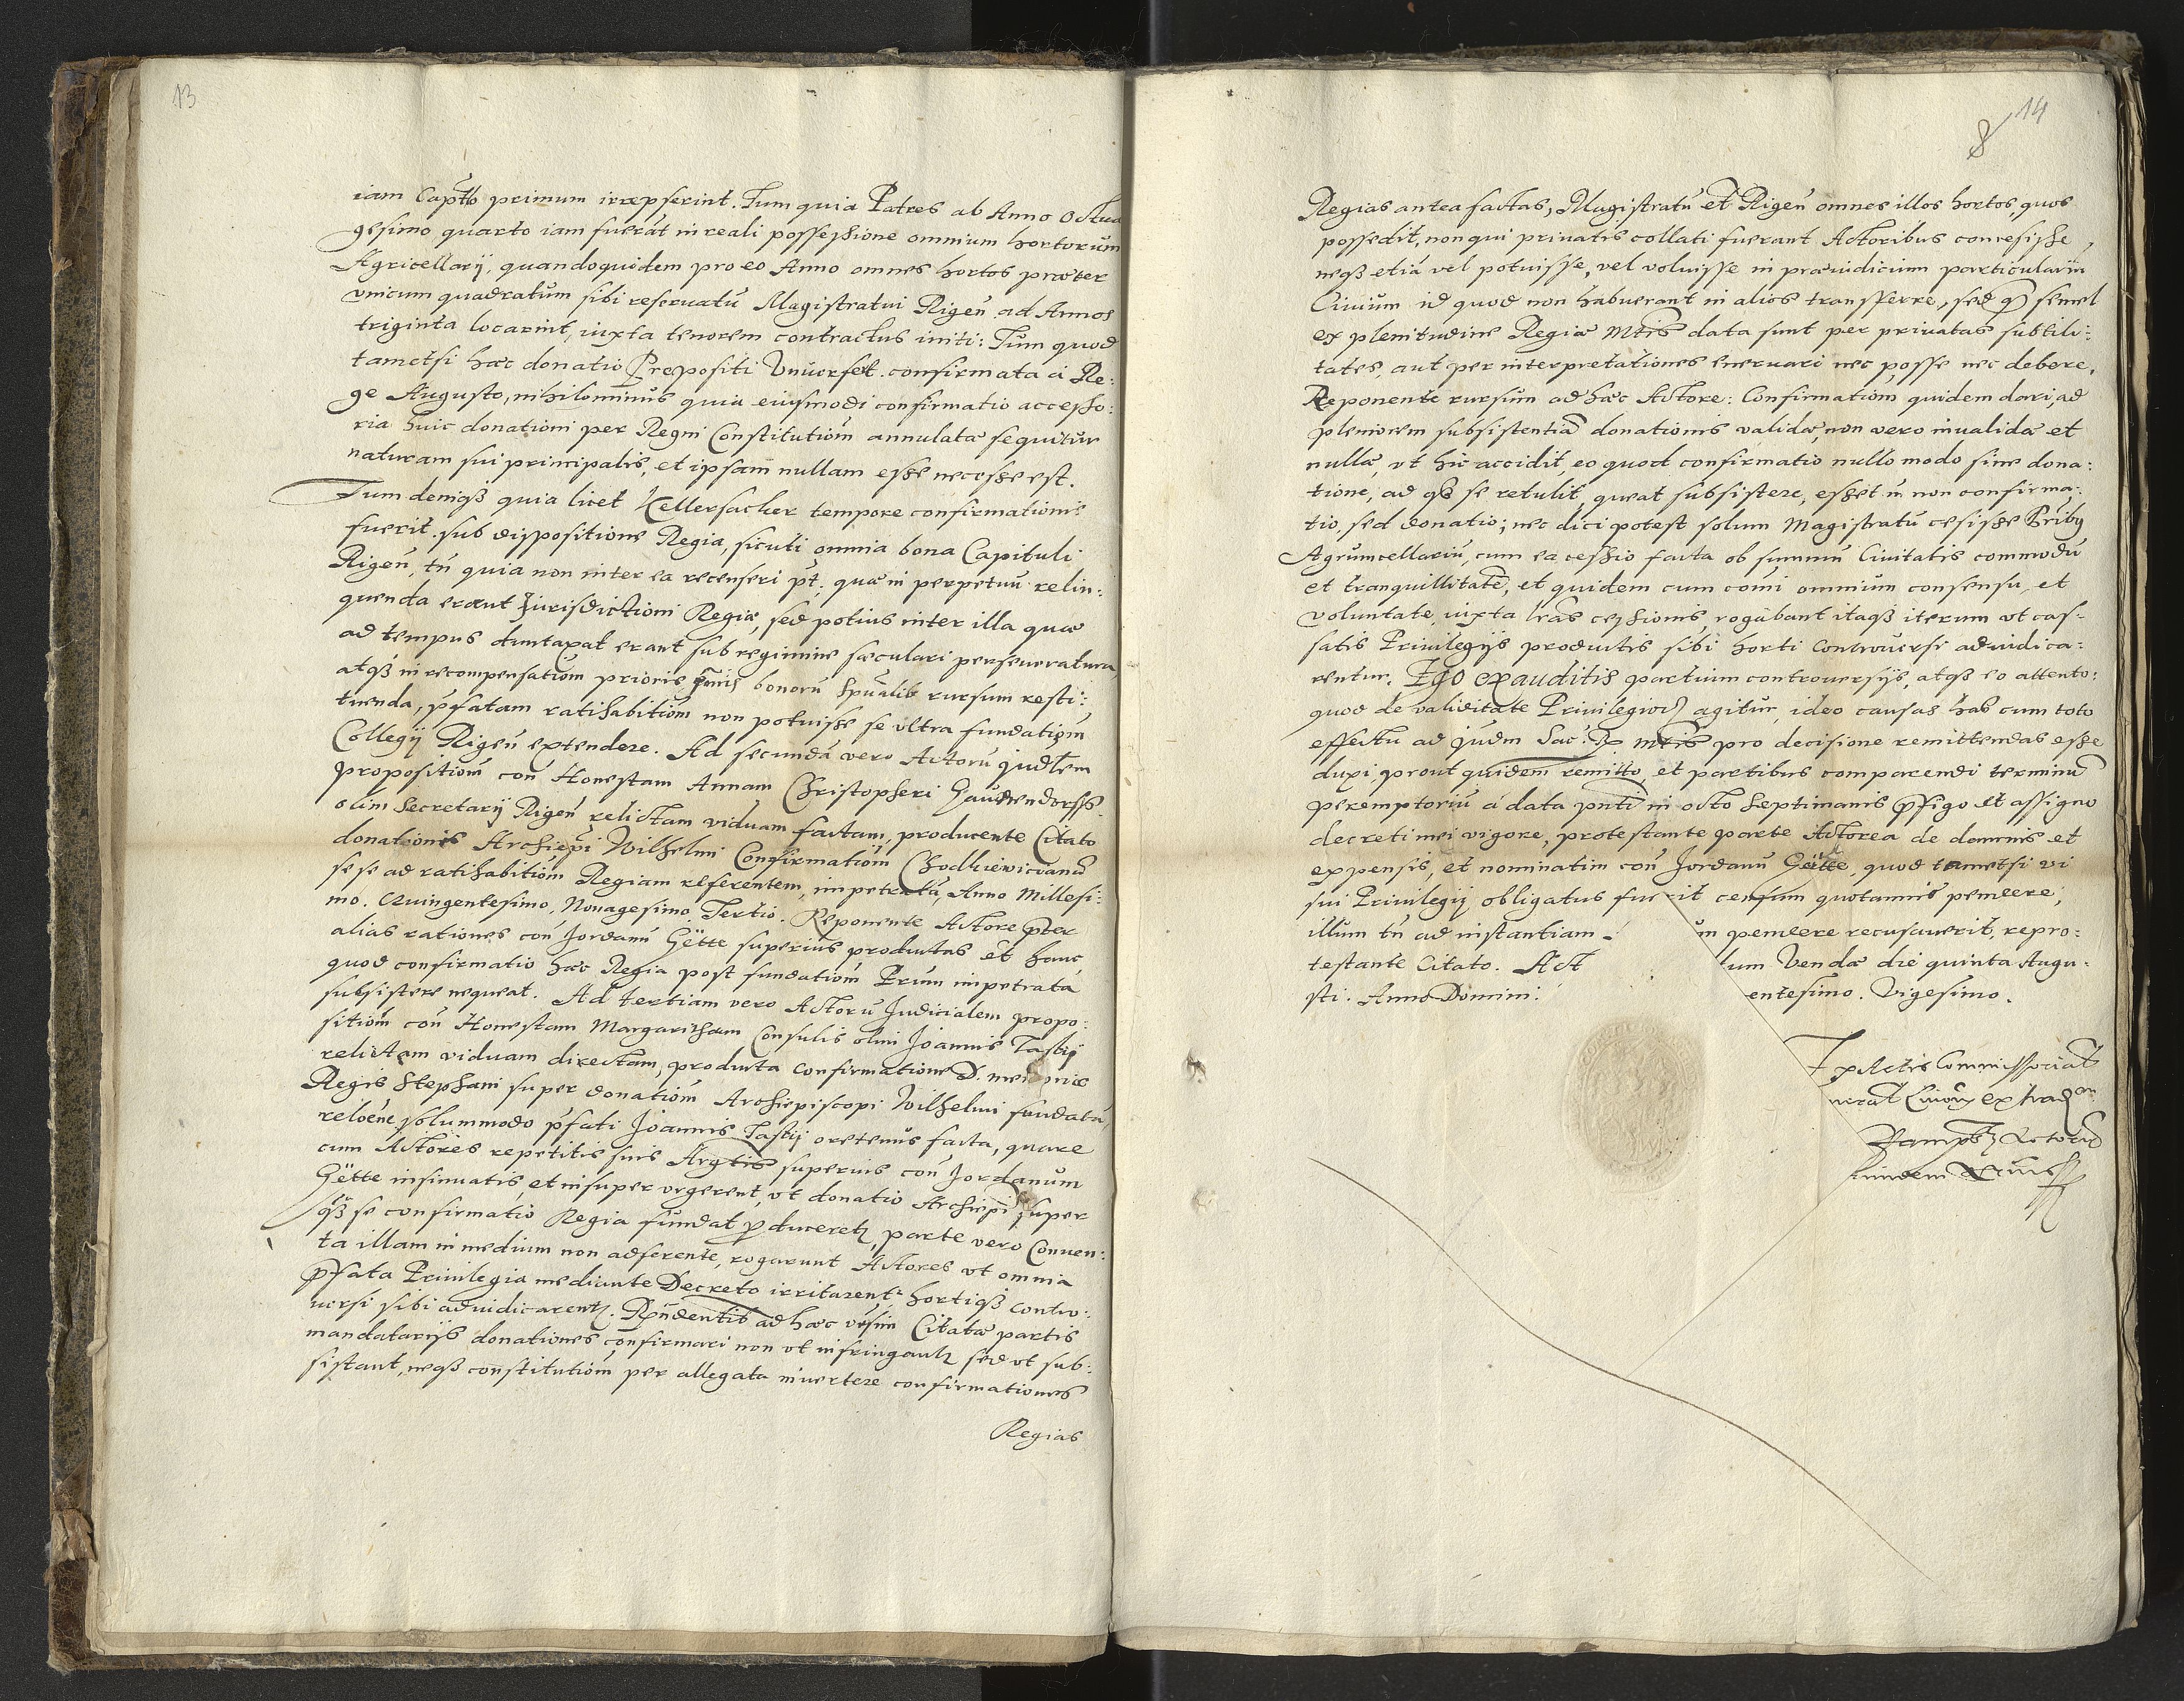 13
iam Captto primum irrepserint. Tum quia Patres ab Anno Octua
gesimo quarto iam fuerāt in reali possessione omnium hortorum
Agricellarij, quandoquidem pro eo Anno omnes hortos præter
vnicum quadratum sibi reseruatū Magistratui Rigeñ ad Annos
triginta locarint, iuxta tenorem contractus initi: Tum quod
tametsi hæc donatio Prepositi confirmata a Re:
ge Augusto, nihilominus quia eiusmodi confirmatio accesso:
ria huic donationi per Regni Constitutiom annulatæ sequitur
naturam sui principalis, et ipsam nullam esse necesse est.
Tum deniqȝ quia licet Kellersacker tempore confirmationis
fuerit sub dispositione Regia, sicuti omnia bona Capituli
Rigeñ, tñ quia non inter ea recenseri pt, quæ in perpetuū relin:
quenda erant Jurisdictioni Regiæ, sed potius inter illa quæ
ad tempus duntaxat erant sub regimine sæculari perseueratura
atqȝ in recompensatiom prioris bonorū spūalib rursum resti:
tuenda, pfatam ratihabitiom non potuisse se vltra fundatiom
Collegij Rigeñ extendere. Ad secundā vero Actorū judlem
propositiom coñ Honestam Annam Christopheri
olim Secretarij Rigeñ relictam viduam factam, producente Citato
donationis Archiepi Wilhelmi Confirmatiom Chodkiewicianā
se se ad ratihabitiom Regiam referentem, impetratā, Anno Millesi:
mo. Quingentesimo, Nonagesimo. Tertio. Reponente Actore pter
alias rationes coñ Jordanū Gëtte superius productas et hanc
quod confirmatio hæc Regia post fundatiom Prum impetrata
subsistere nequeat. Ad tertiam vero Actorū Judicialem propo:
sitiom coñ Honestam Margaritham Consulis olim Joannis Tastij
relictam viduam directam, producta confirmatione D. memoriæ
Regis Stephani super donatiom Archiepiscopi Wilhelmi fundatā
solummodo pfati Joannis Tastij oretenus facta, quare
cum Actores repetitis suis Argtis superius coñ Jordanum
Gëtte insinuatis, et insuper vrgerent, vt donatio Archiepi super
qȝ se confirmatio Regia fundat pduceretȝ, parte vero Conuen:
ta illam in medium non adferente, rogarunt Actores vt omnia
pfata Priuilegia mediante Decreto irritarentr hortiqȝ contro:
uersi sibi adiudicarentȝ. Rñdentib ad hæc Citatæ partis
mandatarijs donationes confirmari non vt infringantȝ sed vt sub:
sistant, neqȝ constitutiom per allegata inuertere confirmationes
Regias
14
8
Regias antea factas, Magistratū et Rigeñ omnes illos hortos, quos
possedit, non qui priuatis collati fuerant Actoribus concesisse,
neqȝ etiā vel potuisse, vel voluisse in præiudicium particularium
Ciuium id quod non habuerant in alios transferre, sed qd semel
ex plenitudine Regiæ Mtis data sunt per priuatas subtili:
tates, aut per interpretationes eneruari nec posse nec debere.
Reponente rursum ad hæc Actore: Confirmatiom quidem dari, ad
pleniorem subsistentiā donationis validæ, non vero inualidæ et
nullæ, vt hic accidit, eo quod confirmatio nullo modo sine dona:
tione, ad qā se retulit, queat subsistere, esset m non confirma:
tio, sed donatio; nec dici potest solum Magistratū cesisse
Agrumcellariū, cum ea cessio facta ob summū Ciuitatis commodū
et tranquillitatē, et quidem cum coi omnium consensu, et
voluntate, iuxta lrās cessionis, rogabant itaqȝ iterum vt cas-
satis Priuilegijs productis sibi horti Controuersi adiudica:
rentur. Ego exauditis partium controuersijs, atqȝ eo attento:
quod de validitate Priuilegiorȝ agitur, ideo causas has cum toto
effectu ad judm Sac: R: Mtis pro decisione remittendas esse
duxi, prout quidem remitto, et partibus comparendi terminū
peremptoriū a data pnti in octo Septimanis pfigo et assigno
decreti mei vigore, protestante parte Actorea de damnis et
expensis, et nominatim coñ Jordanū Gëtte, quod tametsi vi
sui Priuilegij obligatus fuerit censum quotannis pendere,
illum tñ ad instantiam m pendere recusauerit, repro:
testante Citato. Act tum Vendæ die quinta Augu:
sti. Anno Domini. entesimo. Vigesimo.
Ex Actis Commissoriat